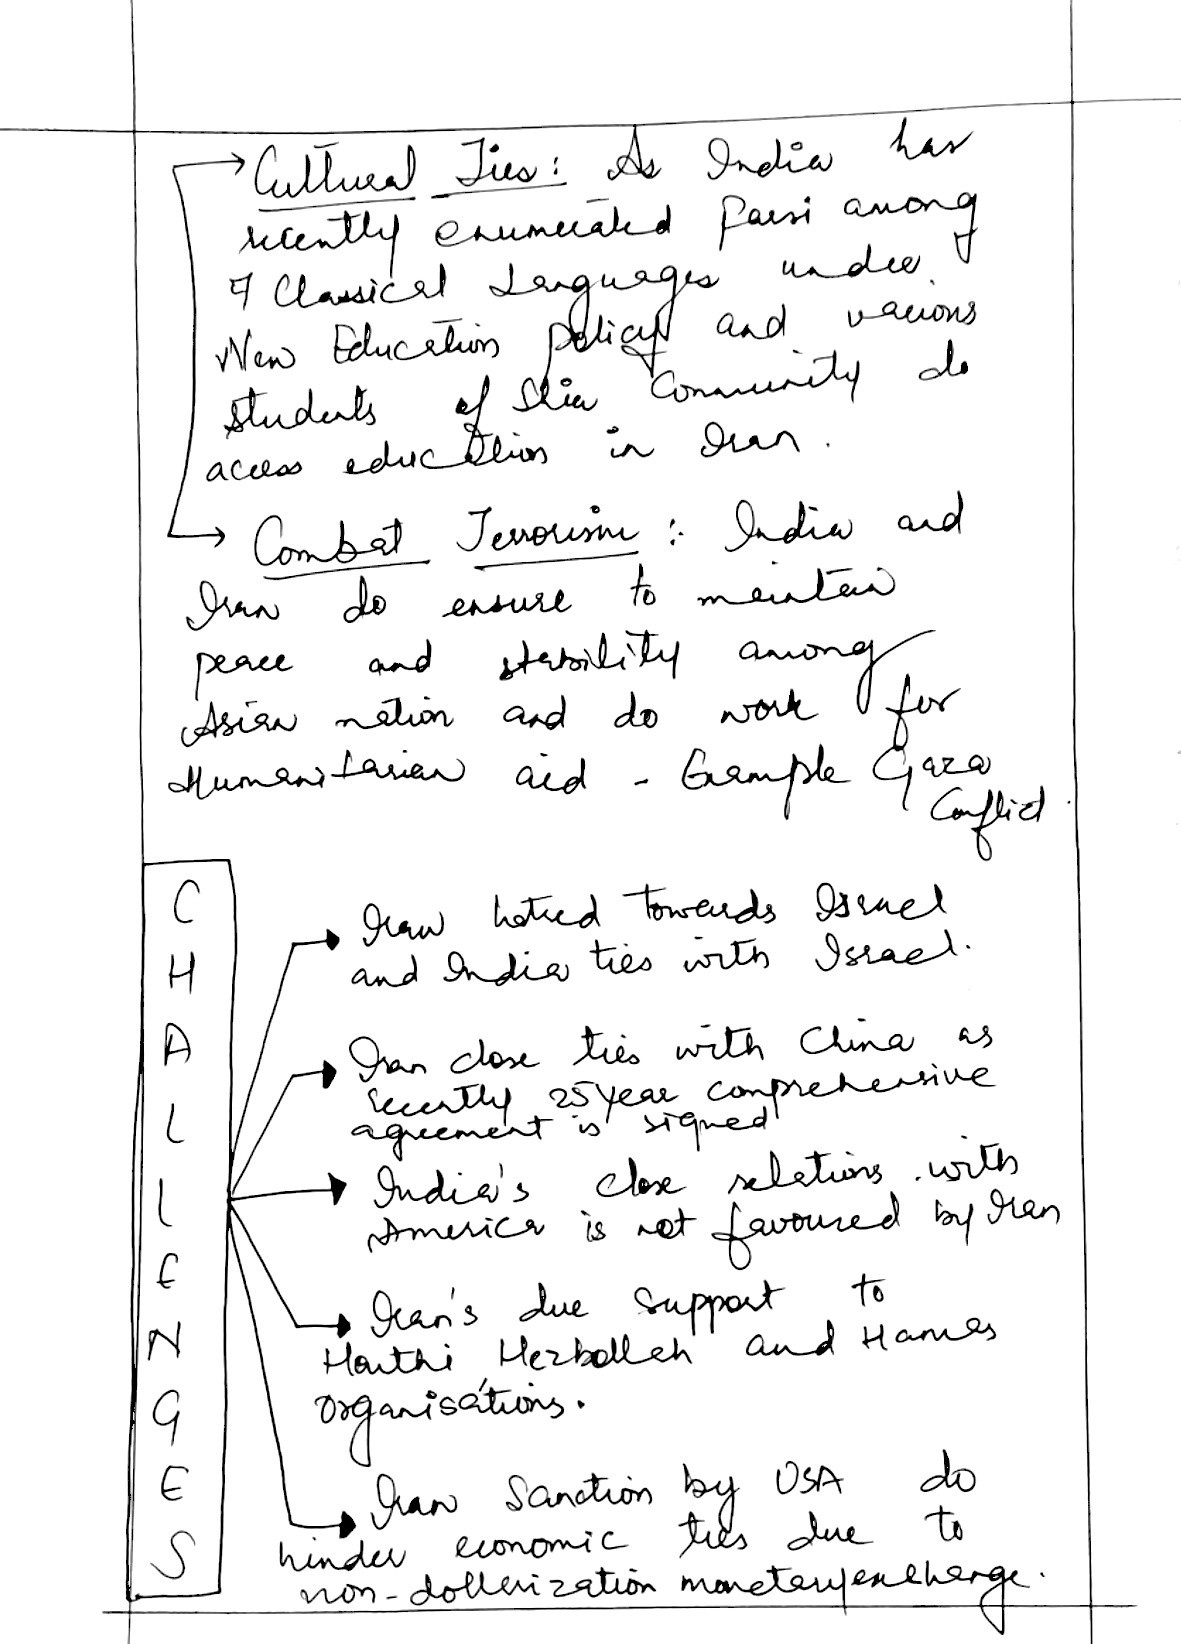 Cultural Ties: As India has
recently enumerated Farsi among
9 Classical Languages under
New Education policy and various
students of Shia Community do
access education in Iran.
Combat Terrorism: India and
Iran do ensure to maintain
peace and stability among
Asian nation and do work for
Humanitarian aid - Example Gaza
Conflict.
CHALLENGES
Iran hatred towards Israel
and India ties with Israel.
Iran close ties with China as
recently 25 year comprehensive
agreement is signed
India's close relations with
America is not favoured by Iran
Iran's due support to
Houthi, Hezbollah and Hamas
organisations.
Iran Sanction by USA do
hinder economic ties due to
non-dollarization monetary exchange.